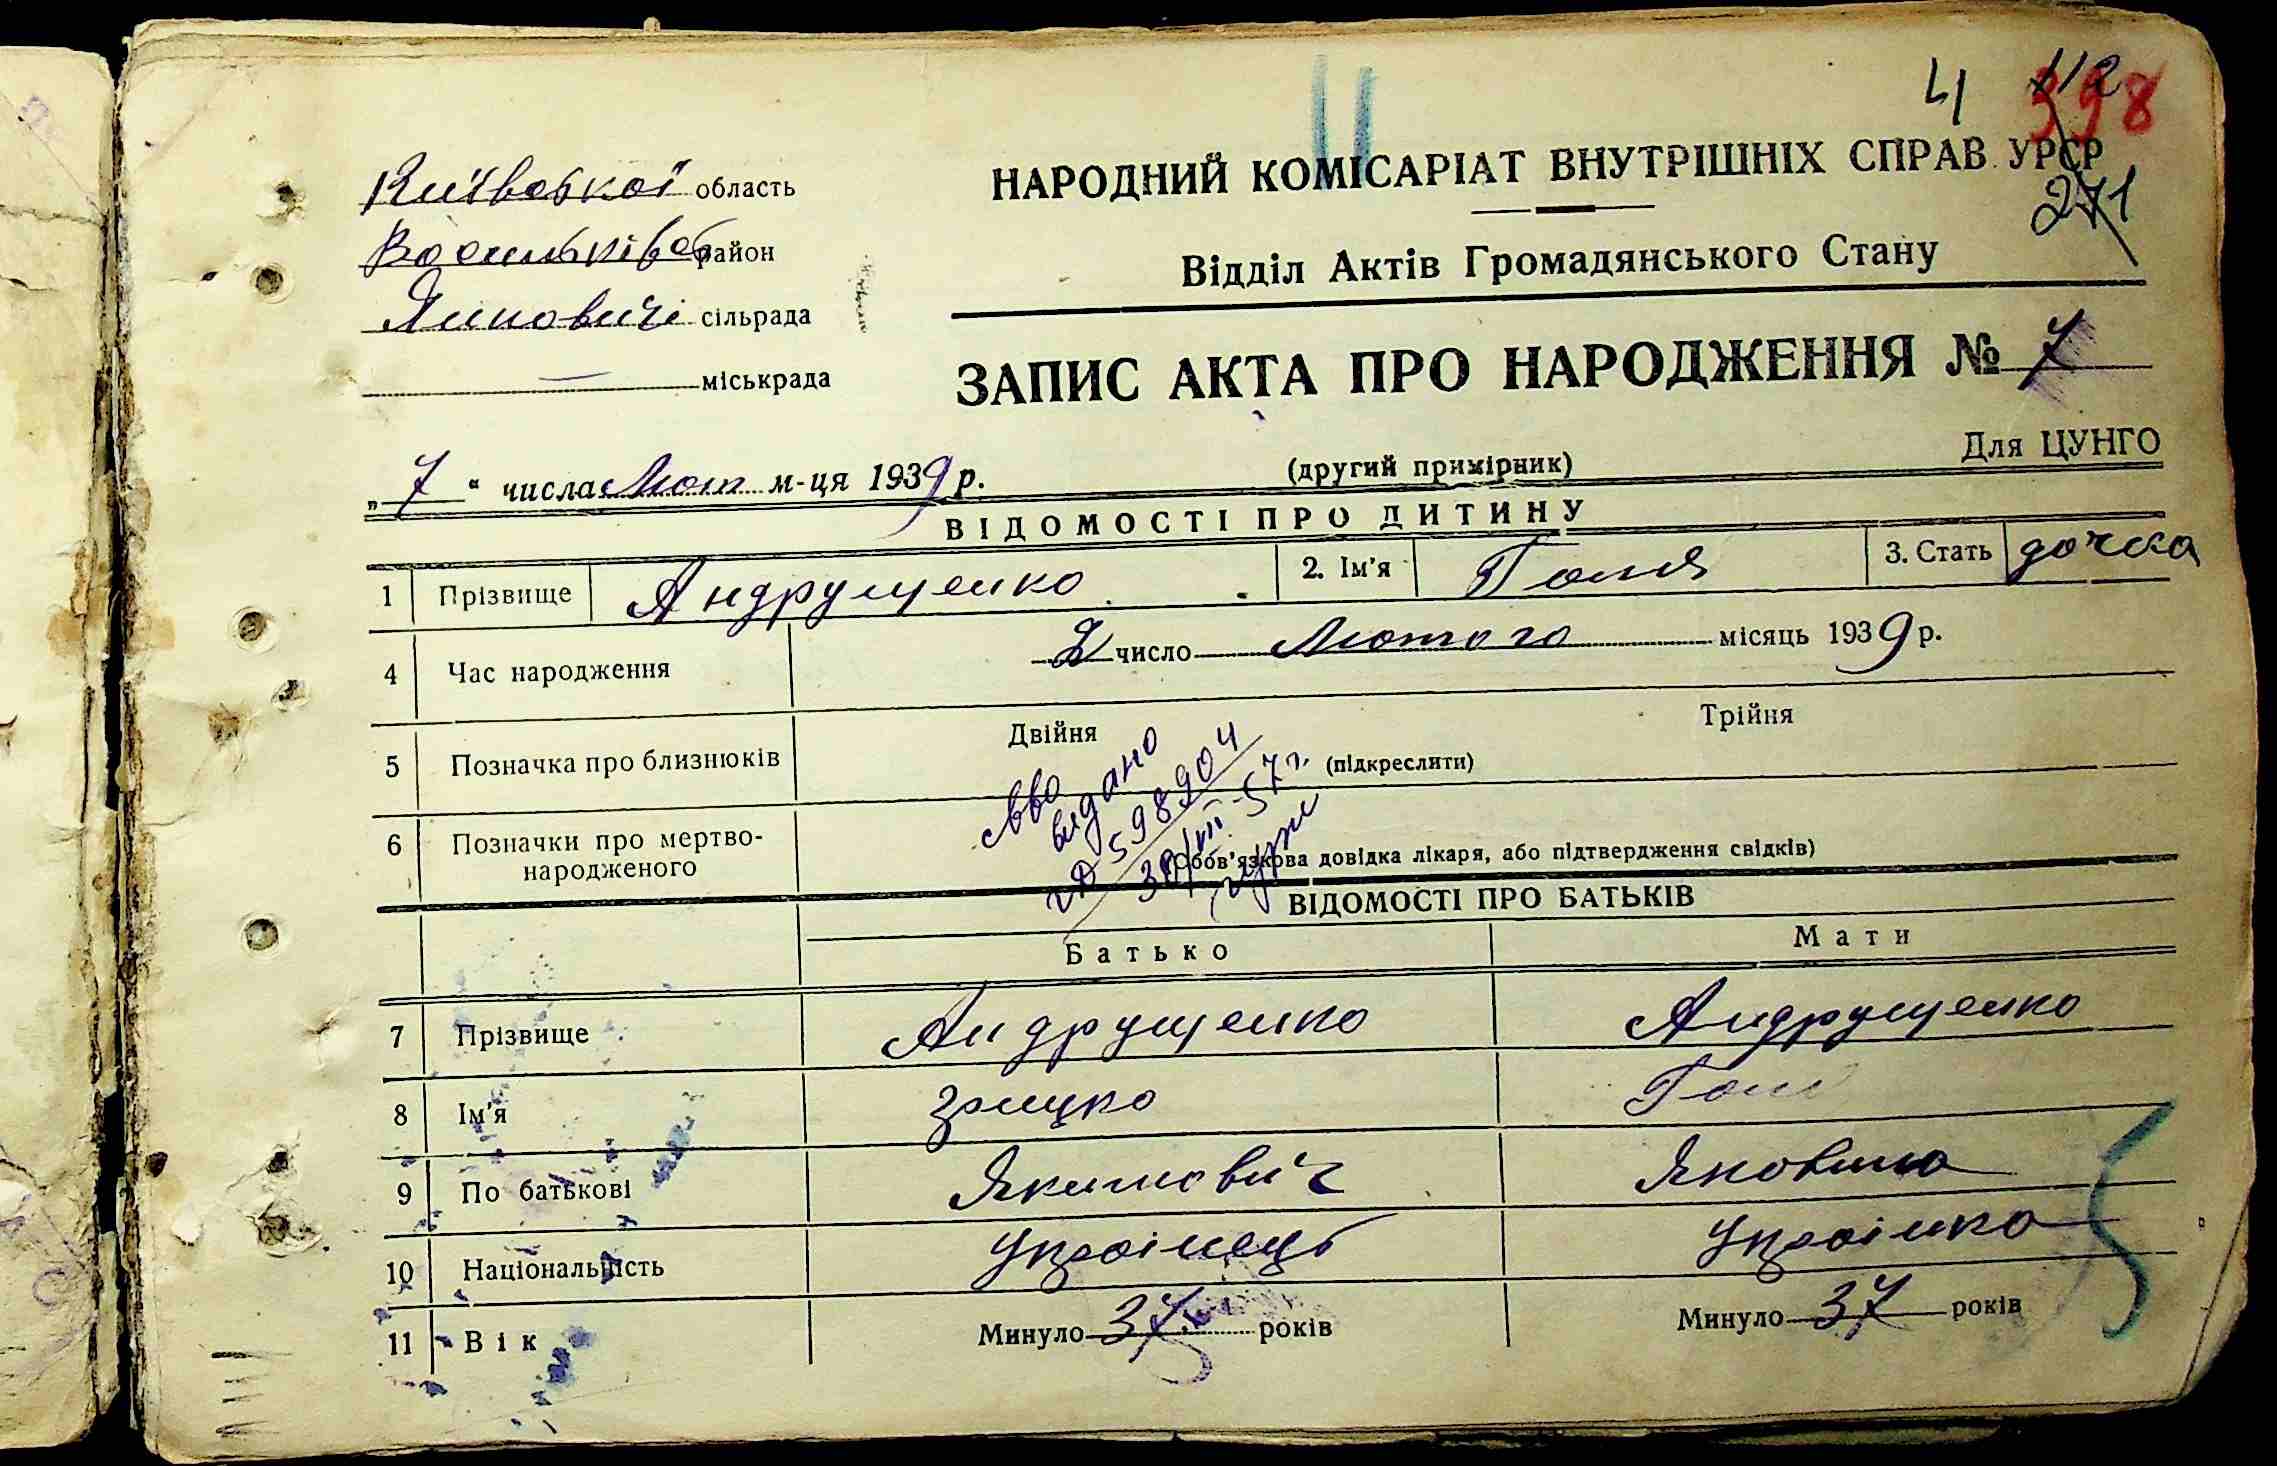 4 112
398
Київської область
НАРОДНИЙ КОМІСАРІАТ ВНУТРІШНІХ СПРАВ УРСР
271
Васильків район
Відділ Актів Громадянського Стану
сільрада
ЗАПИС АКТА ПРО НАРОДЖЕННЯ № 7
— міськрада
Для ЦУНГО
„7“ числа Лют м-ця 1939 р.
(другий примірник)
ВІДОМОСТІ ПРО ДИТИНУ
1 Прізвище Андрущенко 2. Ім'я Галя 3. Стать дочка
4 Час народження 2 число Лютого місяць 1939 р.
5 Позначка про близнюків Двійня Трійня
(підкреслити)
видано
598904
30/VII-57 г.
6 Позначки про мертво-
народженого
(Обов'язкова довідка лікаря, або підтвердження свідків)
ВІДОМОСТІ ПРО БАТЬКІВ
Батько Мати
7 Прізвище Андрущенко Андрущенко
8 Ім'я
9 По батькові Якимович Яковина
10 Національність Українець Українка
11 Вік Минуло 37 років Минуло 37 років